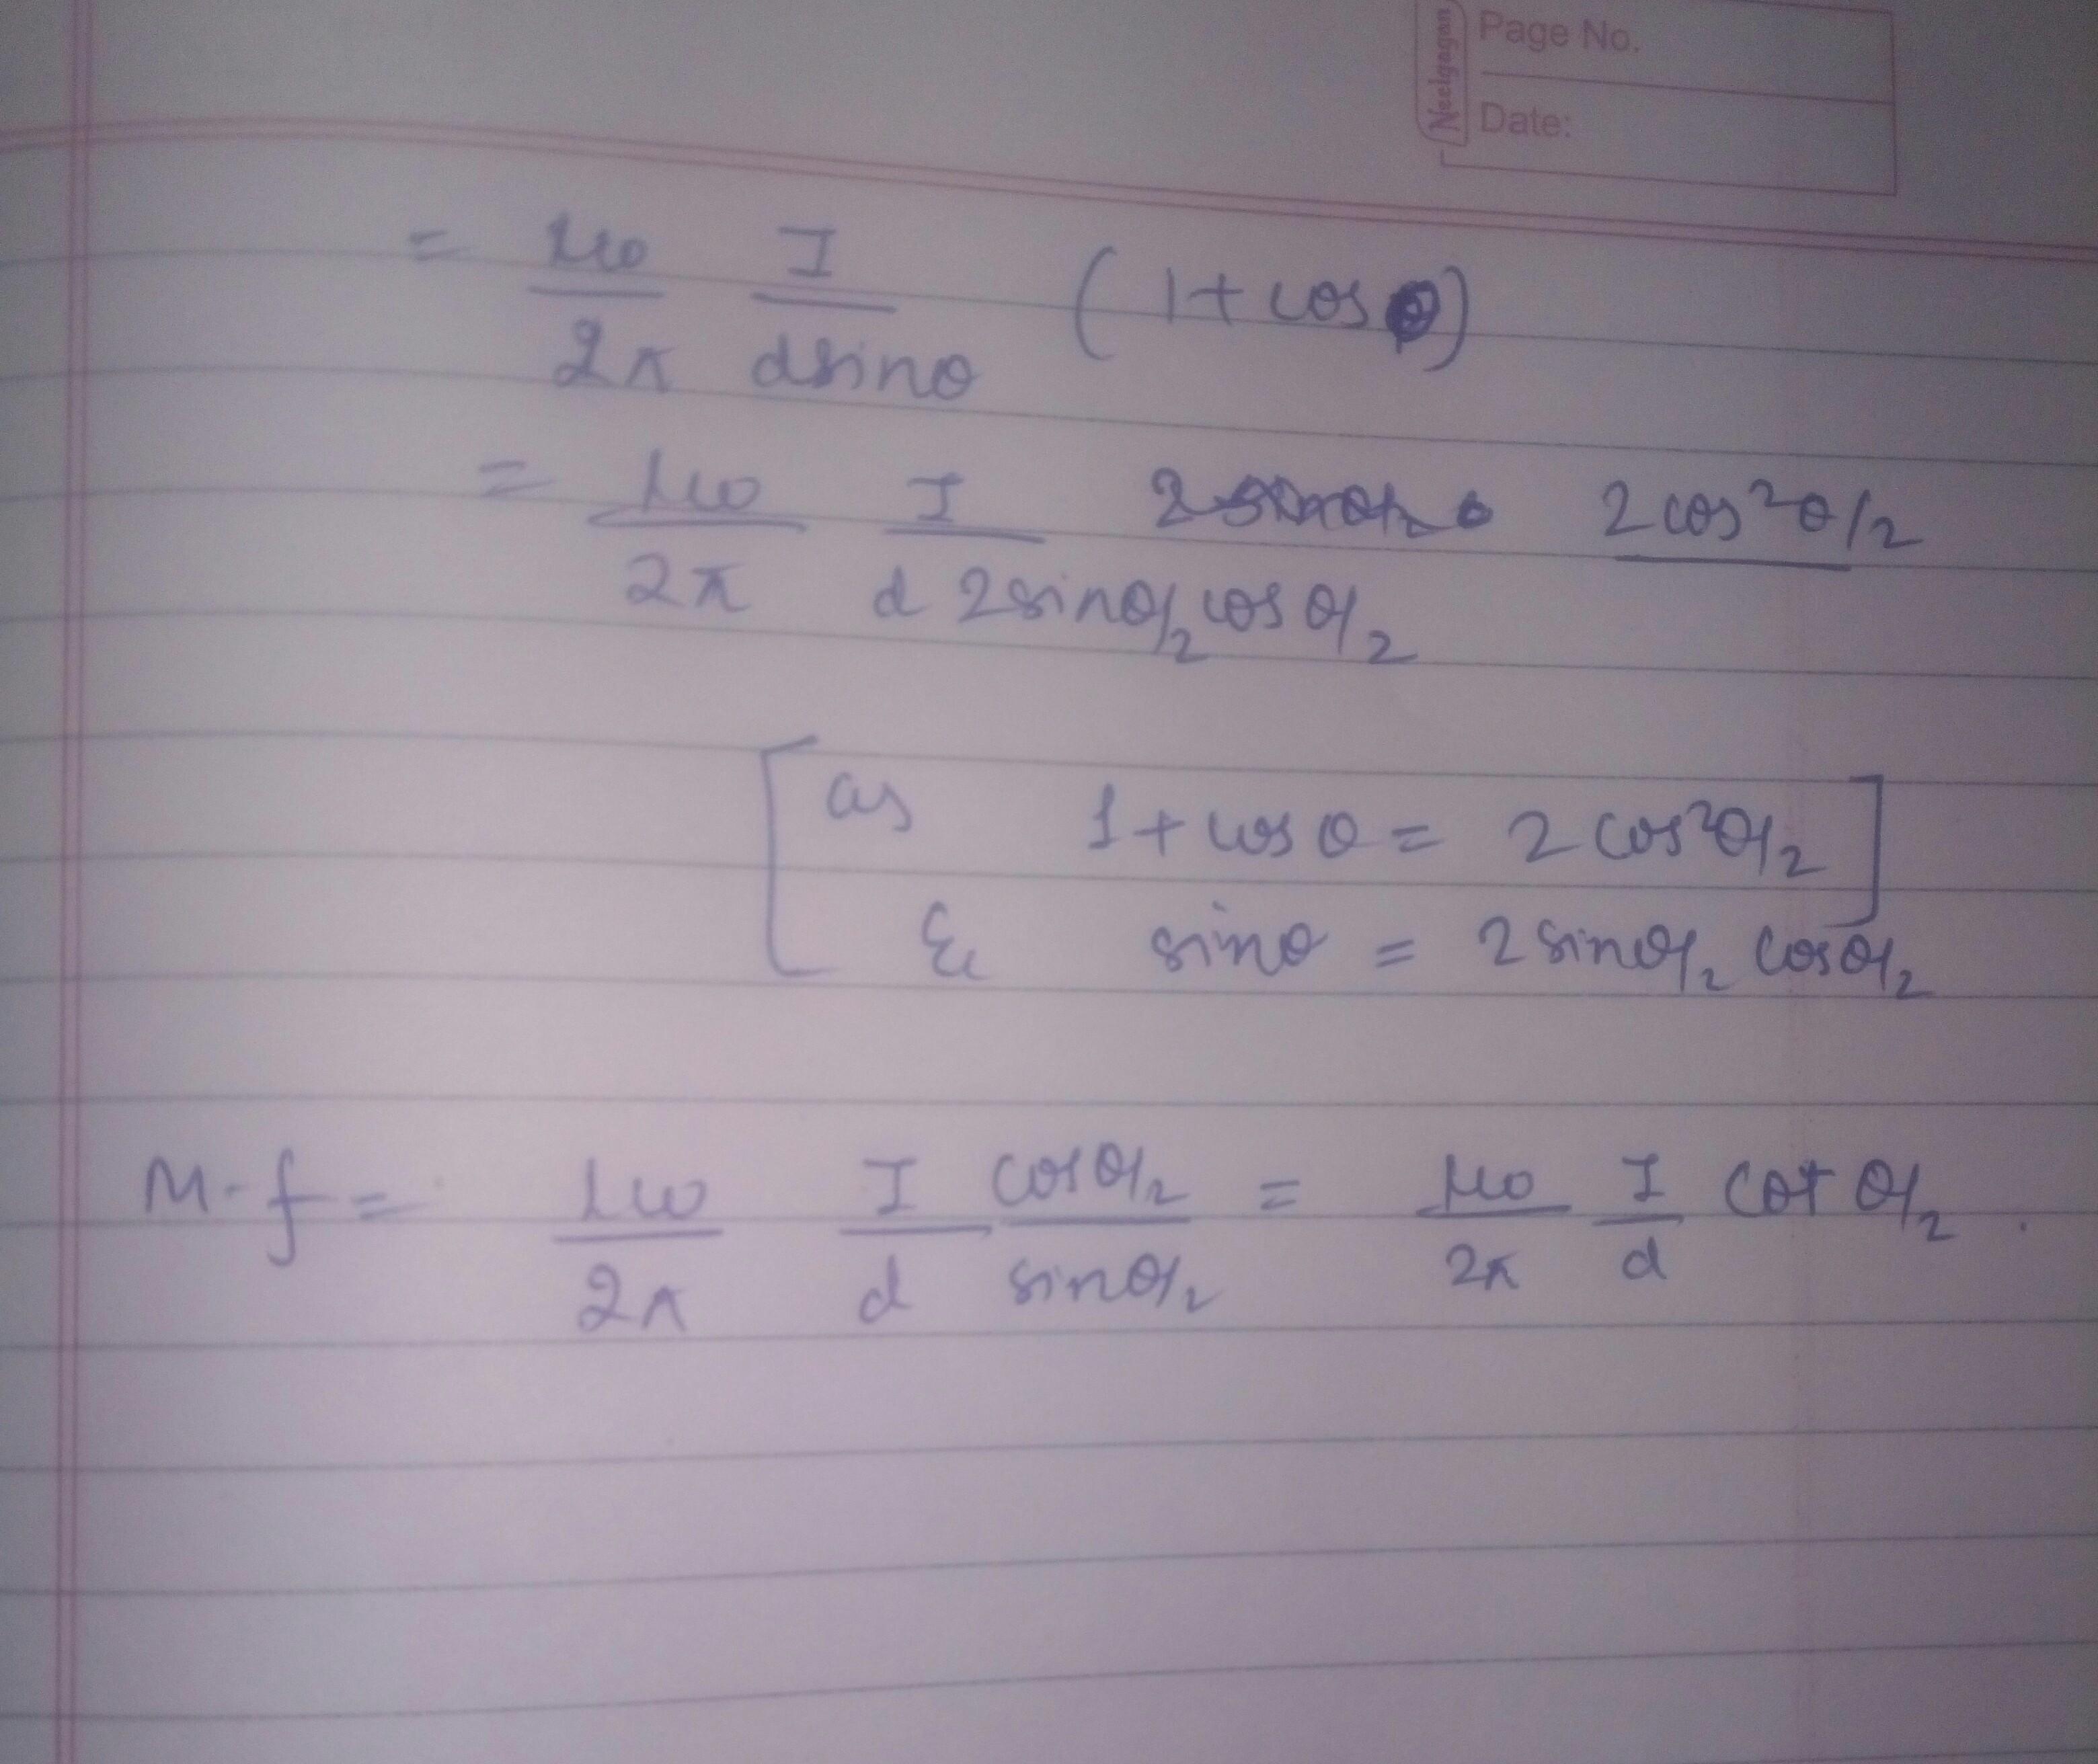 Neelgagan
Page No.
Date:
= μ0/2π I/d sinθ (1 + cosθ)
= μ0/2π I/d 2 sinθ/2 cosθ/2 2cos²θ/2
[as 1 + cosθ = 2 cos²θ/2]
& sinθ = 2 sinθ/2 cosθ/2
M.f = μ0/2π I/d cosθ/2 / sinθ/2 = μ0/2π I/d cot θ/2.